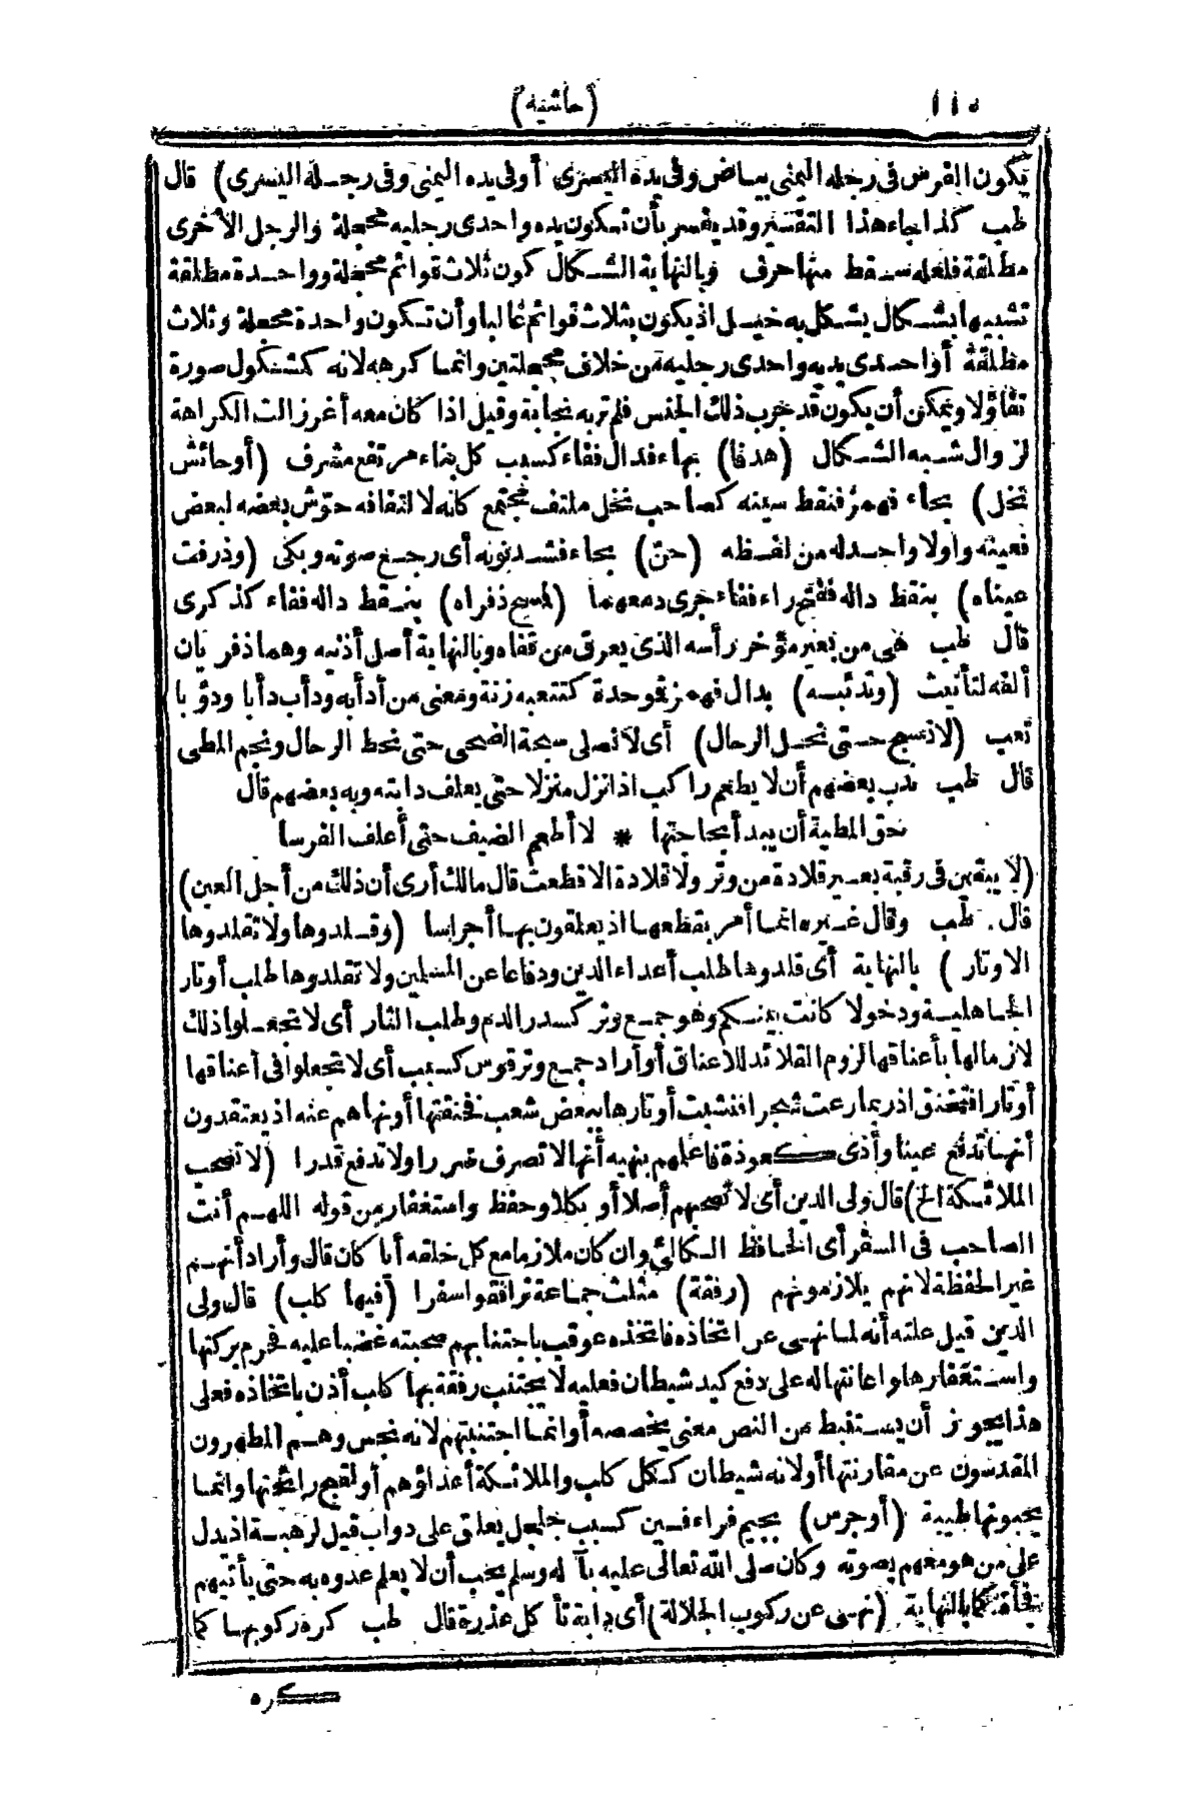 ١١٥ (حاشية)
يكون الفرس فى رجله اليمنى بياض وفى يده اليسرى أو فى يده اليمنى وفى رجله اليسرى) قال
طب كذا جاء هذا التفسير وقد يفسر بأن تكون يده واحدى رجليه محجلة والرجل الاخرى
مطلقة فلعله سقط منها حرف وبالنهاية الشكال كون ثلاث قوائم محجلة وواحدة مطلقة
تشبيها بشكال يشكل به خيل اذ يكون بثلاث قوائم غالبا وأن تكون واحدة محجلة وثلاث
مطلقة أو احدى يديه واحدى رجليه من خلاف محجلتين وانما كرهه لانه كمشكول صورة
تفاؤلا ويمكن أن يكون قد جرب ذلك الجنس فلم تر به نجابة وقيل اذا كان معه أغر زالت الكراهة
لزوال شبه الشكال (هدفا) بهاء فدال ففاء كسبب كل بناء مرتفع مشرف (أو حائش
نخل) بحاء فهمز فنقط سينه كصاحب نخل ملتف مجتمع كأنه لالتفافه حوّش بعضه لبعض
فعينه واو لا واحد له من لفظه (حنّ) بحاء فشد نونه أى رجع صوته وبكى (وذرفت
عيناه) بنقط داله ففتح راء ففاء جرى دمعهما (لمسح ذفراه) بنقط داله ففاء كذكرى
قال طب هى من بعير مؤخر رأسه الذى يعرق من قفاه وبالنهاية أصل أذنيه وهما ذفريان
ألفه لتأنيث (وتدئبه) بدال فهمز فوحدة كتتعبه زنة ومعنى من أدأبه ودأب دأبا ودؤبا
تعب (لا نسبح حتى نحل الرحال) أى لا نصلى سبحة الضحى حتى نحط الرحال ونجم المطى
قال طب ندب بعضهم أن لا يطعم راكب اذا نزل منزلا حتى يعلف دابته وبه بعضهم قال
حق المطية أن يبدأ بحاجتها * لا أطعم الضيف حتى أعلف الفرسا
(لا يبقين فى رقبة بعير قلادة من وتر ولا قلادة الا قطعت قال مالك أرى أن ذلك من أجل العين)
قال طب وقال غيره انما أمر بقطعها اذ يعلقون بها أجراسا (وقلدوها ولا تقلدوها
الاوتار) بالنهاية أى قلدوها طلب أعداء الدين ودفاعا عن المسلمين ولا تقلدوها طلب أوتار
الجاهلية ودخولا كانت بينكم وهو جمع وتر كسدر الدم وطلب الثار أى لا تجعلوا ذلك
لازما لها بأعناقها لزوم القلائد للاعناق أو أراد جمع وتر قوس كسبب أى لا تجعلوا فى أعناقها
أوتارا فتختنق اذ ربما رعت شجرا فنشبت أوتارها ببعض شعب فخنقتها أو نهاهم عنه اذ يعتقدون
أنها تدفع عينا وأذى كعوذة فاعلمهم بنهيه أنها لا تصرف ضررا ولا تدفع قدرا (لا تصحب
الملائكة الخ) قال ولى الدين أى لا تصحبهم أصلا أو بكلا وحفظ واستغفار من قوله اللهم أنت
الصاحب فى السفر أى الحافظ الكالئ وان كان ملازما مع كل خلقه أيا كان قال وأراد أنهم
غير الحفظة لانهم يلازمونهم (رفقة) مثلث جماعة ترافقوا سفرا (فيها كلب) قال ولى
الدين قيل علته أنه لما نهى عن اتخاذه فاتخذه عوقب باجتنابهم صحبته غضبا عليه فحرم بركتها
واستغفارها واعانتها له على دفع كيد شيطان فعليه لا يجتنب رفقة بها كلب أذن باتخاذه فعلى
هذا يجوز أن يستنبط من النص معنى يخصصه أو انما اجتنبتهم لانه نجس وهم المطهرون
المقدسون عن مقارنتها أو لانه شيطان ككل كلب والملائكة أعداؤهم أو لقبح رائحتها وانما
يحبونها طيبة (أو جرس) بجيم فراء فسين كسبب جلجل يعلق على دواب قيل لرهبة اذ يدل
على من هو معهم بصوته وكان صلى الله تعالى عليه بآله وسلم يحب أن لا يعلم عدوه به حتى يأتيهم
فجأة كما بالنهاية (نهى عن ركوب الجلالة) أى دابة تأكل عذرة قال طب كره ركوبها كما
كره